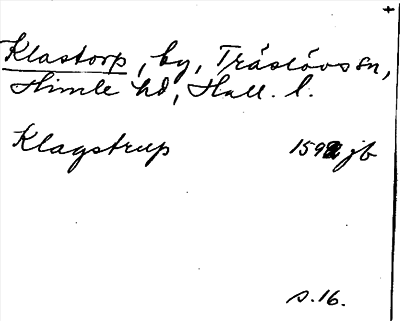 Klastorp, by, Tráslövs sn,
Himle hd, Hall. l.
Klagstrup 1592 jb
s. 16.